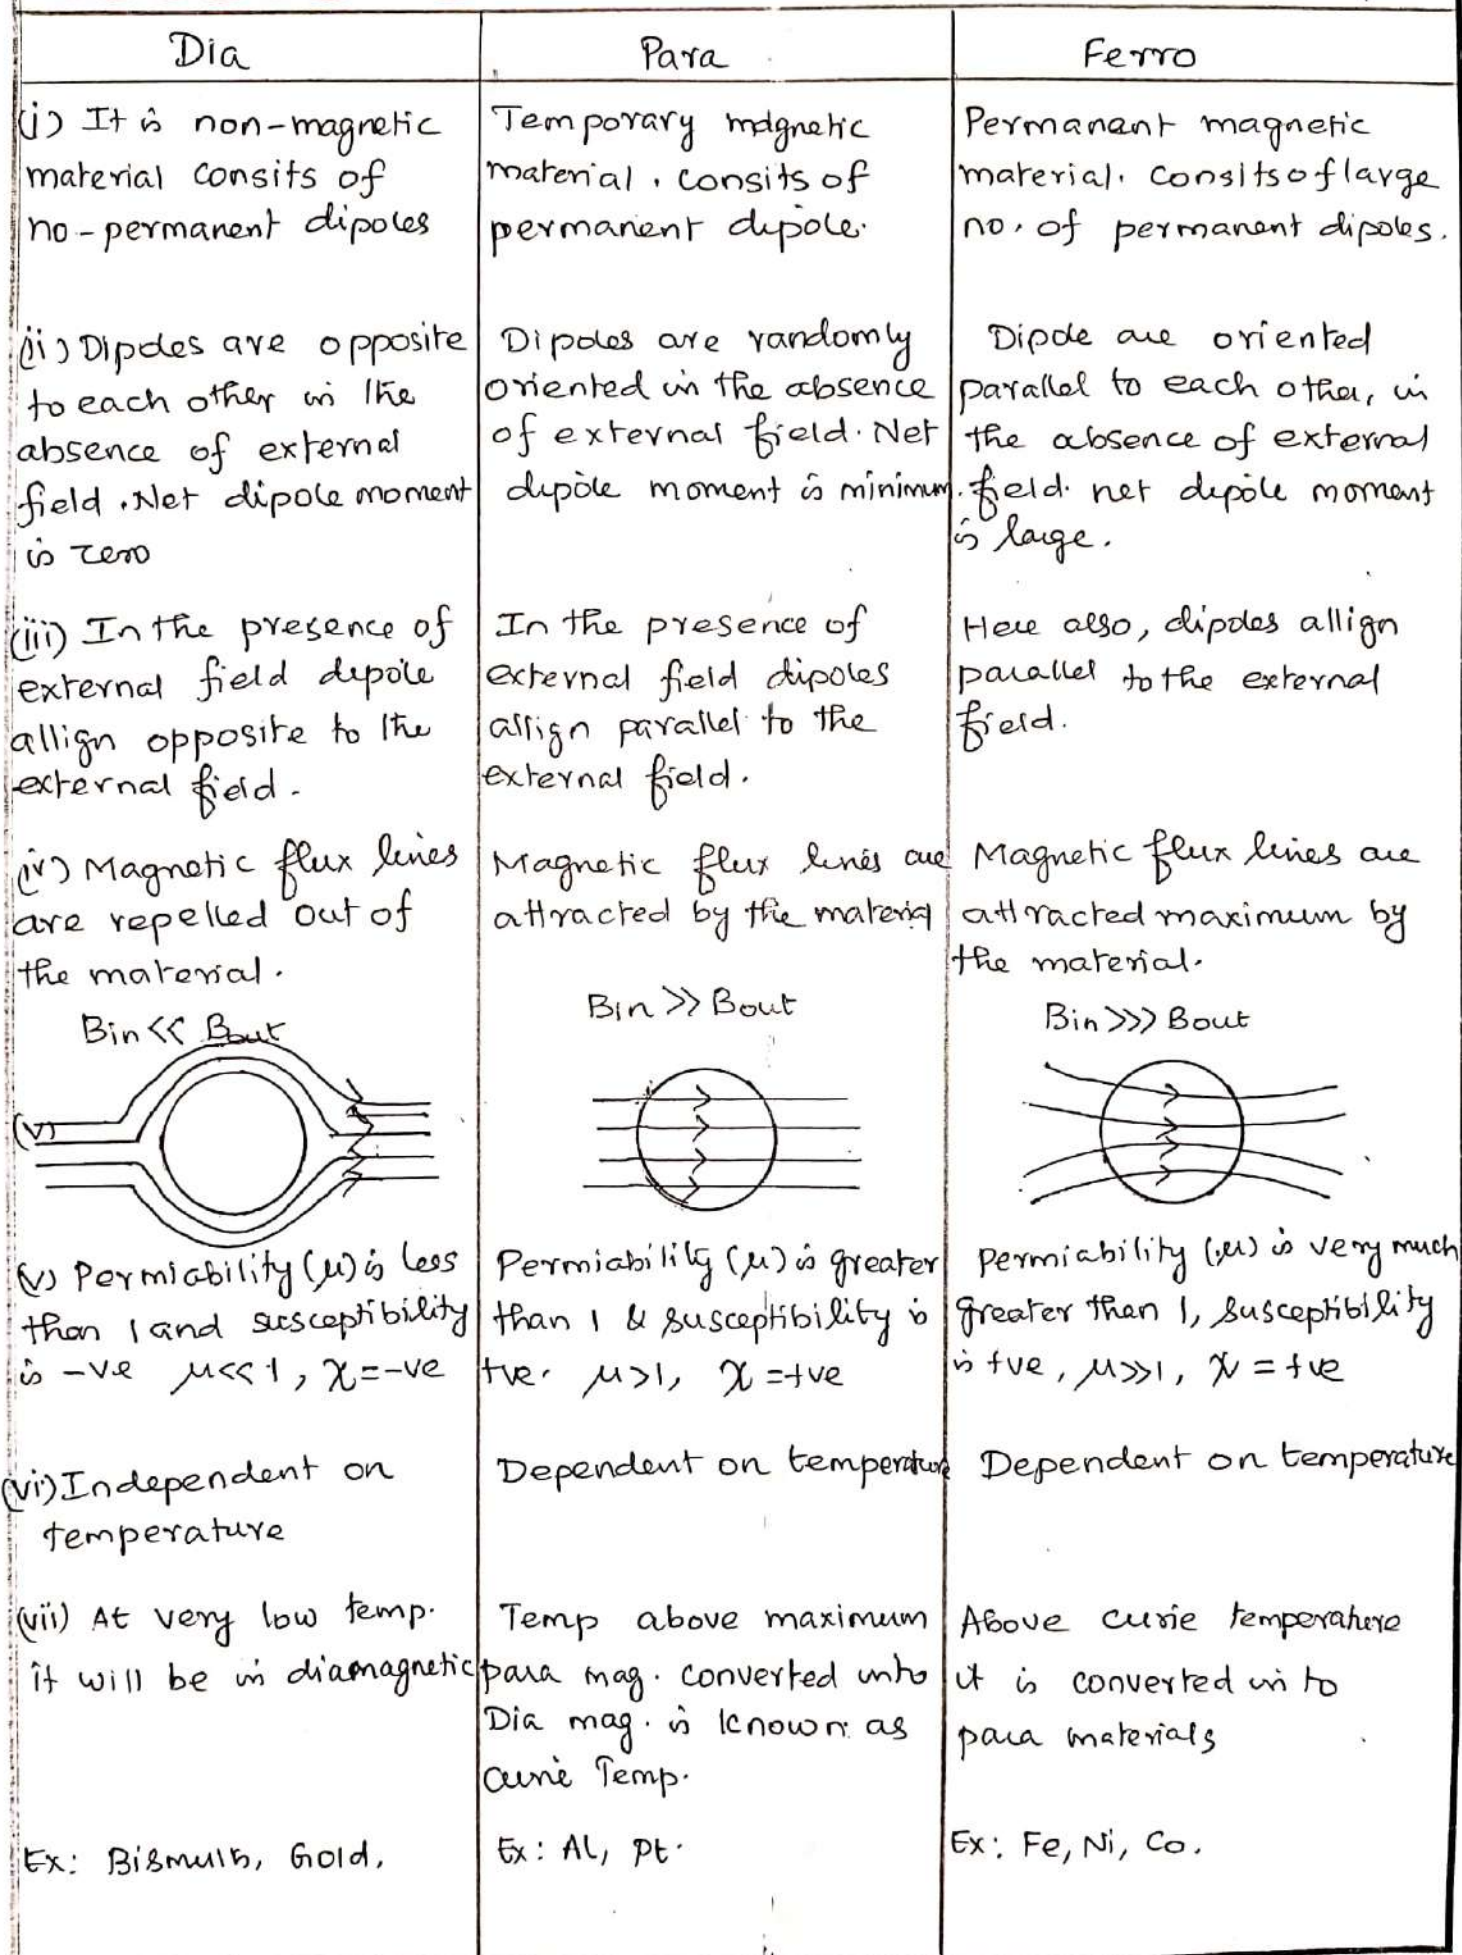 Dia
Para
Ferro
(i) It is non-magnetic
material consits of
no-permanent dipoles
Temporary magnetic
material. consits of
permanent dipole.
Permanant magnetic
material. consits of large
no. of permanent dipoles.
(ii) Dipoles are opposite
to each other in the
absence of external
field. Net dipole moment
is zero
Dipoles are randomly
oriented in the absence
of external field. Net
dipole moment is minimum.
Dipole are oriented
parallel to each other, in
the absence of external
field. net dipole moment
is large.
(iii) In the presence of
external field dipole
allign opposite to the
external field.
In the presence of
external field dipoles
allign parallel to the
external field.
Here also, dipoles allign
parallel to the external
field.
(iv) Magnetic flux lines
are repelled out of
the material.
Bin << Bout
Magnetic flux lines are
attracted by the material
Bin >> Bout
Magnetic flux lines are
attracted maximum by
the material.
Bin >>> Bout
(v)
(v) Permiability (μ) is less
than 1 and susceptibility
is -ve μ<<1, χ=-ve
Permiability (μ) is greater
than 1 & susceptibility is
+ve. μ>1, χ=+ve
Permiability (μ) is very much
greater than 1, susceptibility
is +ve, μ>>1, χ=+ve
(vi) Independent on
temperature
Dependent on temperature
Dependent on temperature
(vii) At very low temp.
it will be in diamagnetic
Temp above maximum
para mag. converted into
Dia mag. is known as
curie Temp.
Above curie temperature
it is converted in to
para materials
Ex: Bismuth, Gold,
Ex: Al, Pt.
Ex: Fe, Ni, Co.